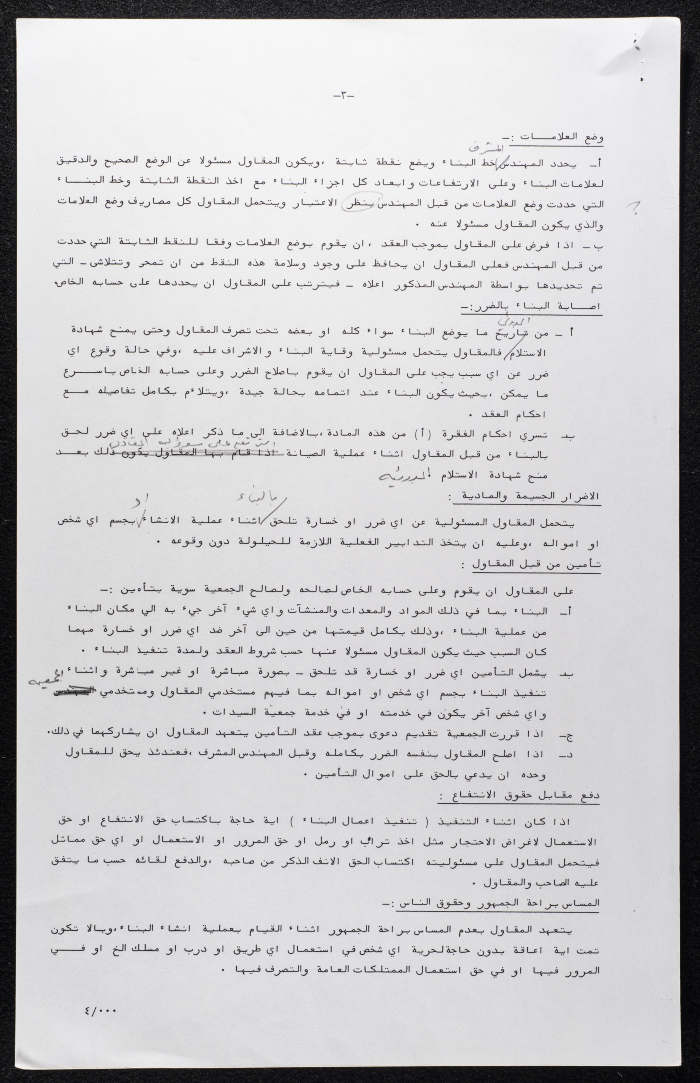 -٣-
وضع العلامـــات :-
المشرف
أ- يحدد المهندس خط البناء ويضع نقطة ثابتة ،ويكون المقاول مسئولا عن الوضع الصحيح والدقيق
لعلامات البناء وعلى الارتفاعات وابعاد كل اجزاء البناء مع اخذ النقطة الثابتة وخط البنــاء
التي حددت وضع العلامات من قبل المهندس بنظر الاعتبار ويتحمل المقاول كل مصاريف وضع العلامات ؟
والذي يكون المقاول مسئولا عنه .
ب- اذا فرض على المقاول بموجب العقد ،ان يقوم بوضع العلامات وفقا للنقط الثابتة التي حددت
من قبل المهندس فعلى المقاول ان يحافظ على وجود وسلامة هذه النقط من ان تمحى وتتلاشى - التي
تم تحديدها بواسطة المهندس المذكور اعلاه - فيترتب على المقاول ان يحددها على حسابه الخاص.
اصـابة البناء بالضرر:-
أ - من تاريخ ما يوضع البناء سواء كله او بعضه تحت تصرف المقاول وحتى يمنح شهادة
الاستلام فالمقاول يتحمل مسئولية وقاية البناء والاشراف عليه ،وفي حالة وقوع اي
ضرر عن اي سبب يجب على المقاول ان يقوم باصلاح الضرر وعلى حسابه الخاص باسـرع
ما يمكن ،بحيث يكون البناء عند اتمامه بحالة جيدة ،ويتلاءم بكامل تفاصيله مـع
احكام العقد .
ب- تسري احكام الفقرة (أ) من هذه المادة ،بالاضافة الى ما ذكر اعلاه على اي ضرر لحق
بالبناء من قبل المقاول اثناء عملية الصيانة اذا قام بها المقاول يكون ذلك بعـد
منح شهادة الاستلام .
الاضرار الجسيمة والمادية :
بالبناء او
يتحمل المقاول المسئولية عن اي ضرر او خسارة تلحق اثناء عملية الانشاء بجسم اي شخص
او امواله ،وعليه ان يتخذ التدابير الفعلية اللازمة للحيلولة دون وقوعه .
تأمين من قبل المقاول :
على المقاول ان يقوم وعلى حسابه الخاص لصالحه ولصالح الجمعية سوية بتأمين :-
أ- البناء بما في ذلك المواد والمعدات والمنشآت واي شيء آخر جيء به الي مكان البناء
من عملية البناء ،وذلك بكامل قيمتها من حين الى آخر ضد اي ضرر او خسارة مهما
كان السبب حيث يكون المقاول مسئولا عنها حسب شروط العقد ولمدة تنفيذ البناء .
ب- يشمل التأمين اي ضرر او خسارة قد تلحق - بصورة مباشرة او غير مباشرة واثناء
الجمعيه
تنفيذ البناء بجسم اي شخص او امواله بما فيهم مستخدمي المقاول ومستخدمي المهندس
واي شخص آخر يكون في خدمته او في خدمة جمعية السيدات .
ج- اذا قررت الجمعية تقديم دعوى بموجب عقد التأمين يتعهد المقاول ان يشاركهما في ذلك.
د- اذا اصلح المقاول بنفسه الضرر بكامله وقبل المهندس المشرف ،فعندئذ يحق للمقاول
وحده ان يدعي بالحق على اموال التأمين .
دفع مقابل حقوق الانتفاع :
اذا كان اثناء التنفيذ ( تنفيذ اعمال البناء ) اية حاجة باكتساب حق الانتفاع او حق
الاستعمال لاغراض الاحتجار مثل اخذ تراب او رمل او حق المرور او الاستعمال او اي حق مماثل
فيتحمل المقاول على مسئوليته اكتساب الحق الانف الذكر من صاحبه ،والدفع لقائه حسب ما يتفق
عليه الصاحب والمقاول .
المساس براحة الجمهور وحقوق الناس :-
يتعهد المقاول بعدم المساس براحة الجمهور اثناء القيام بعملية انشاء البناء،وبالا تكون
تمت اية اعاقة بدون حاجة لحرية اي شخص في استعمال اي طريق او درب او مسلك الخ او فــي
المرور فيها او في حق استعمال الممتلكات العامة والتصرف فيها .
٤/٠٠٠